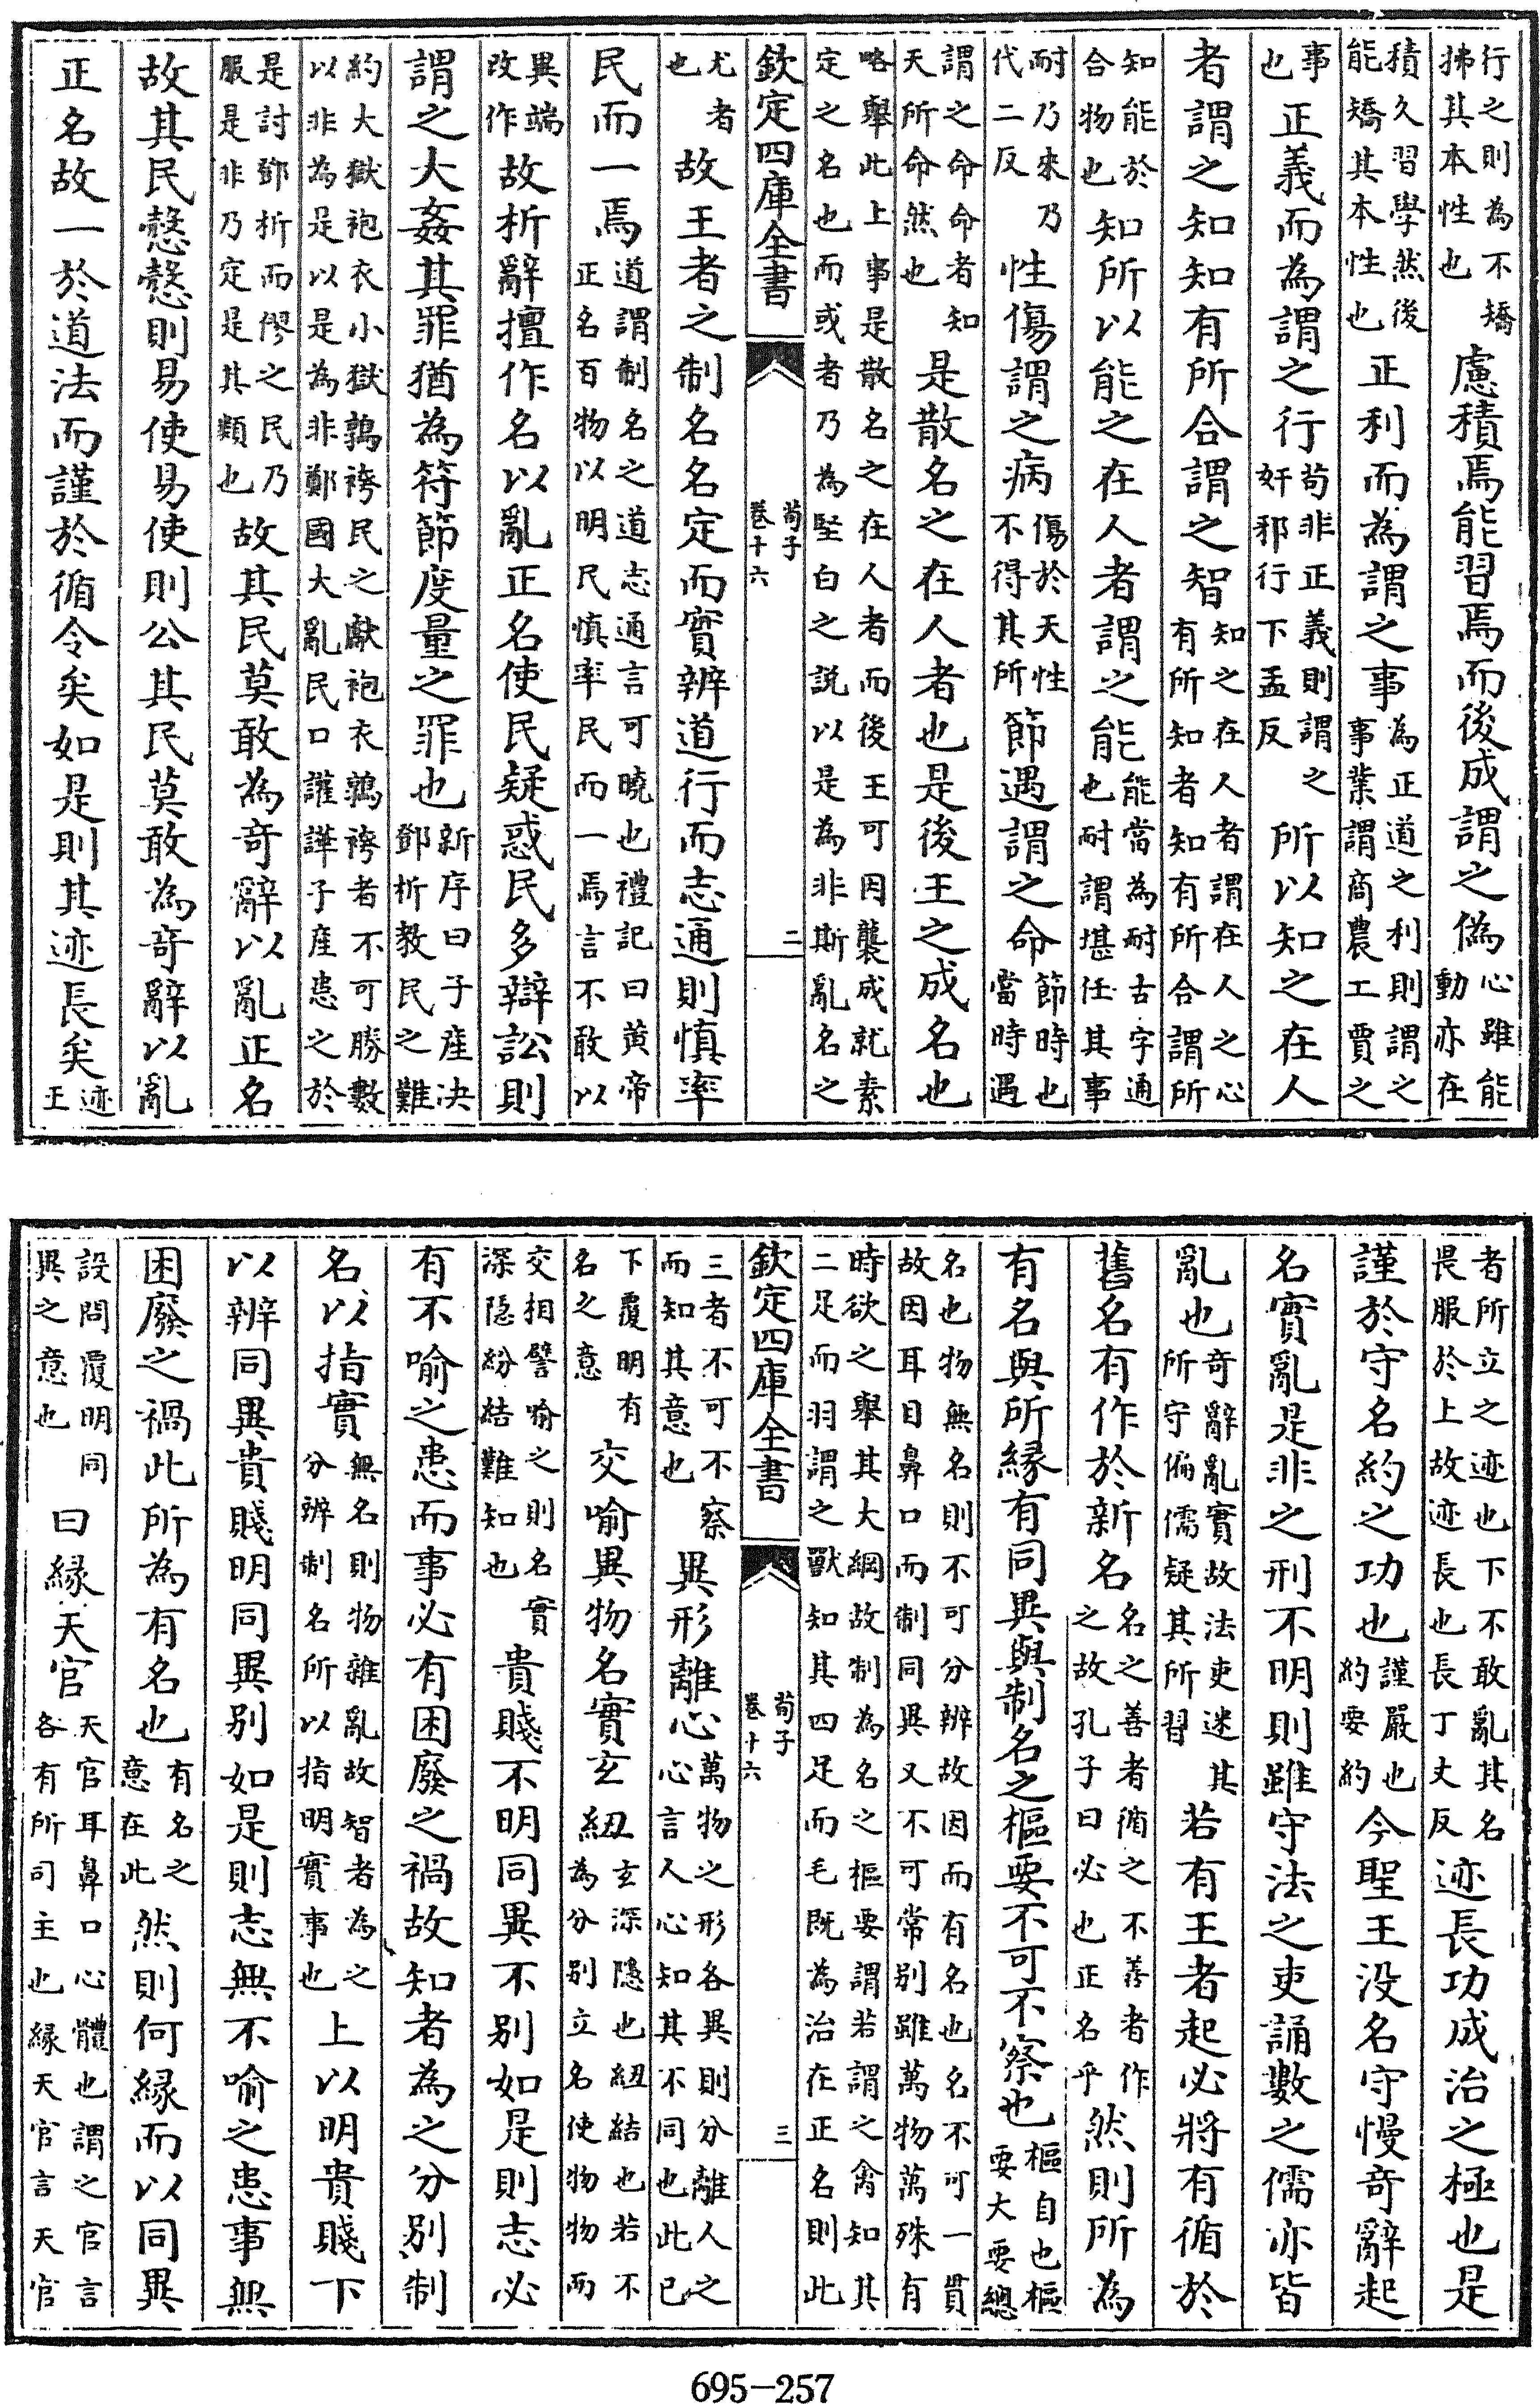 行之則為不矯拂其本性也慮積焉能習焉而後成謂之偽心雖能動亦在
積久習學然後能矯其本性也正利而為謂之事為正道之利則謂之事業謂商農工賈之
事也正義而為謂之行苟非正義則謂之奸邪行下孟反所以知之在人
者謂之知知有所合謂之智知之在人者謂在人之心有所知者知有所合謂所
知能於合物也知所以能之在人者謂之能能當為耐古字通也耐謂堪任其事
耐乃來乃代二反性傷謂之病傷於天性不得其所節遇謂之命節時也當時遇
謂之命命者知天所命然也是散名之在人者也是後王之成名也
略舉此上事是散名之在人者而後王可因襲成就素定之名也而或者乃為堅白之説以是為非斯亂名之
欽定四庫全書 荀子卷十六 二
尤者也故王者之制名名定而實辨道行而志通則慎率
民而一焉道謂制名之道志通言可曉也禮記曰黄帝正名百物以明民慎率民而一焉言不敢以
異端改作故析辭擅作名以亂正名使民疑惑民多辯訟則
謂之大姦其罪猶為符節度量之罪也新序曰子産决鄧析教民之難
約大獄袍衣小獄袴民之獻袍衣袴者不可勝數以非為是以是為非鄭國大亂民口讙譁子産患之於
是討鄧析而僇之民乃服是非乃定是其類也故其民莫敢為奇辭以亂正名
故其民慤慤則易使易使則公其民莫敢為奇辭以亂
正名故一於道法而謹於循令矣如是則其迹長矣迹王
者所立之迹也下不敢亂其名畏服於上故迹長也長丁丈反迹長功成治之極也是
謹於守名約之功也謹嚴也約要約今聖王没名守慢奇辭起
名實亂是非之刑不明則雖守法之吏誦數之儒亦皆
亂也奇辭亂實故法吏迷其所守偏儒疑其所習若有王者起必將有循於
舊名有作於新名名之善者循之不善者作之故孔子曰必也正名乎然則所為
有名與所緣有同異與制名之樞要不可不察也樞自也樞要大要總
名也物無名則不可分辨故因而有名也名不可一貫故因耳目鼻口而制同異又不可常别雖萬物萬殊有
時欲之舉其大綱故制為名之樞要謂若謂之禽知其二足而羽謂之獸知其四足而毛既為治在正名則此
欽定四庫全書 荀子卷十六 三
三者不可不察而知其意也異形離心萬物之形各異則分離人之心言人心知其不同也此已
下覆明有名之意交喻異物名實玄紐玄深隱也紐結也若不為分别立名使物物而
交相譬喻之則名實深隱紛結難知也貴賤不明同異不别如是則志必
有不喻之患而事必有困廢之禍故知者為之分别制
名以指實無名則物雜亂故智者為之分辨制名所以指明實事也上以明貴賤下
以辨同異貴賤明同異别如是則志無不喻之患事無
困廢之禍此所為有名也有名之意在此然則何緣而以同異
設問覆明同異之意也曰緣天官天官耳鼻口心體也謂之官言各有所司主也緣天官言天官
695-257